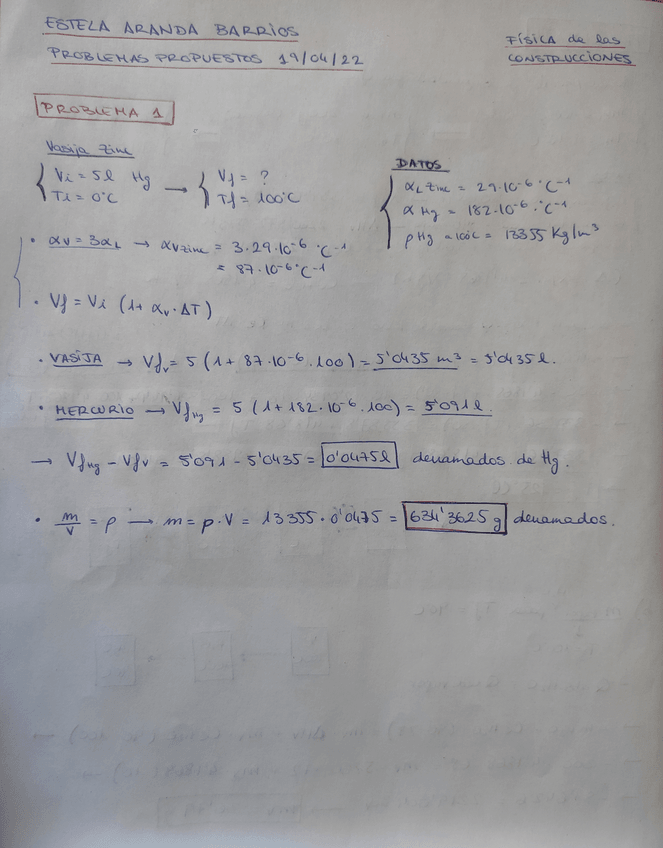 ESTELA ARANDA BARRIOS
PROBLEMAS PROPUESTOS 19/04/22
FÍSICA de las
CONSTRUCCIONES
PROBLEMA 1
Vasija zinc
Vi = 5l Hg → Vf = ?
Ti = 0°C Tf = 100°C
DATOS
αL zinc = 29·10⁻⁶ °C⁻¹
α Hg = 182·10⁻⁶·°C⁻¹
ρ Hg a 100°C = 13355 Kg/m³
• αV = 3αL → αV zinc = 3·29·10⁻⁶ °C⁻¹
= 87·10⁻⁶ °C⁻¹
• Vf = Vi (1 + αV·ΔT)
• VASIJA → Vfv = 5 (1 + 87·10⁻⁶·100) = 5'0435 m³ = 5'0435 l.
• MERCURIO → VfHg = 5 (1 + 182·10⁻⁶·100) = 5'091 l.
→ VfHg - Vfv = 5'091 - 5'0435 = 0'0475 l derramados de Hg.
• m/V = ρ → m = ρ·V = 13355·0'0475 = 634'3625 g derramados.